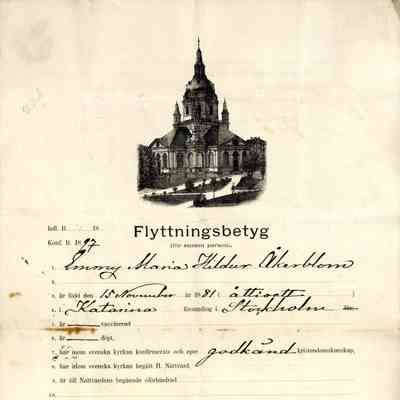 Inft. B. 18
Flyttningsbetyg
Konf. B. 1897
(för ensam person).
1. Emmy Maria Hildur Åkerblom
2.
3. är född den 15 November år 1881 ( åttioett )
4. i Katarina församling i Stockholm län
5. är vaccinerad
6. är döpt,
7. har inom svenska kyrkan konfirmerats och eger godkänd kristendomskunskap,
8. har inom svenska kyrkan begått H. Nattvard,
9. är till Nattvardens begående oförhindrad
10.